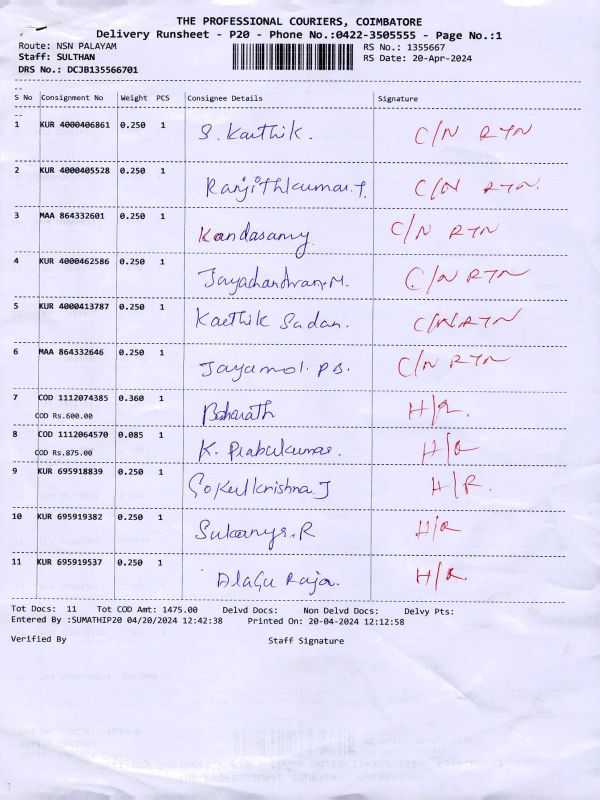 THE PROFESSIONAL COURIERS, COIMBATORE
Delivery Runsheet - P20 - Phone No.:0422-3505555 - Page No.:1
Route: NSN PALAYAM RS No.: 1355667
Staff: SULTHAN RS Date: 20-Apr-2024
DRS No.: DCJB135566701
S No Consignment No Weight PCS Consignee Details Signature
1 KUR 4000406861 0.250 1 S. Karthik. C/N RTN
2 KUR 4000405528 0.250 1 Ranjithkumar.T. C/N RTN.
3 MAA 864332601 0.250 1 Kandasamy C/N RTN
4 KUR 4000462586 0.250 1 Jayachandran.M. C/N RTN
5 KUR 4000413787 0.250 1 Karthik Sadan. C/N RTN
6 MAA 864332646 0.250 1 Jayamol. P.B. C/N RTN
7 COD 1112074385 0.360 1 Bharath H/R.
COD Rs.600.00
8 COD 1112064570 0.085 1 K. Prabukumar. H/R
COD Rs.875.00
9 KUR 695918839 0.250 1 Gokulkrishna.J H/R.
10 KUR 695919382 0.250 1 Sukanya.R H/R
11 KUR 695919537 0.250 1 Alagu Raja. H/R
Tot Docs: 11 Tot COD Amt: 1475.00 Delvd Docs: Non Delvd Docs: Delvy Pts:
Entered By :SUMATHIP20 04/20/2024 12:42:38 Printed On: 20-04-2024 12:12:58
Verified By Staff Signature